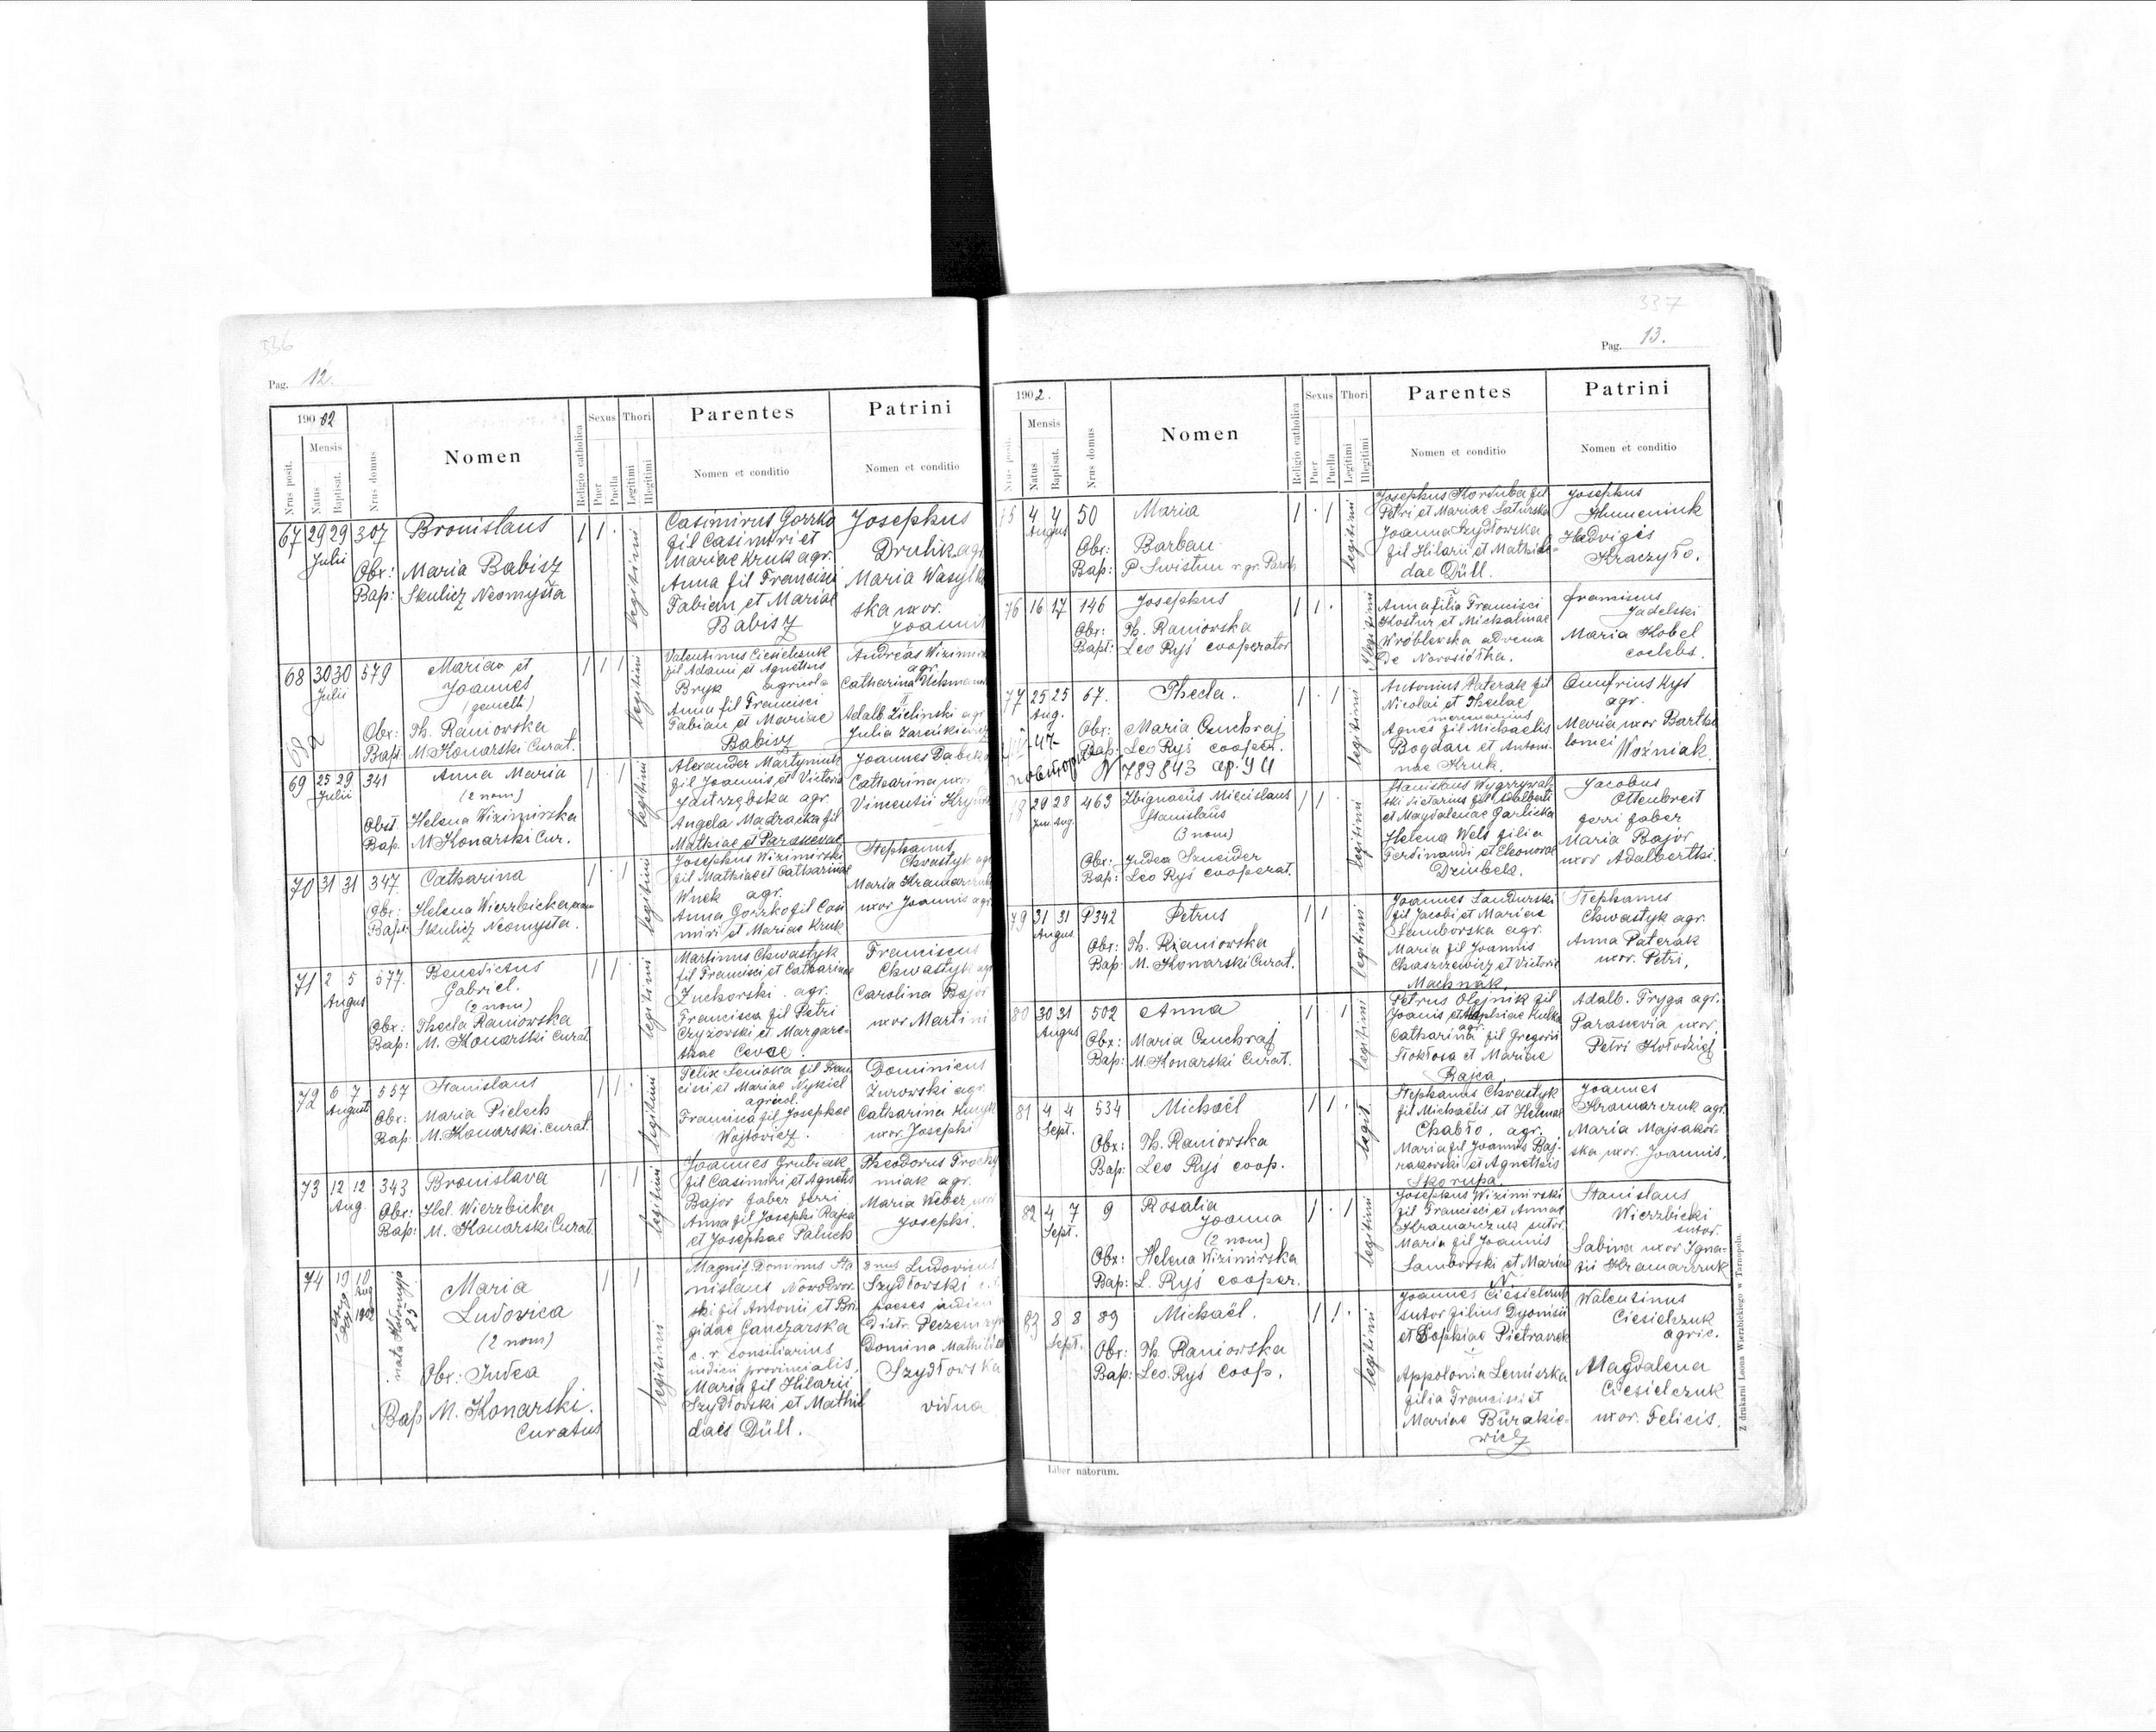 336
Pag. 12.
1902
Nrus posit.
Mensis
Natus
Baptisat.
Nrus domus
Nomen
Religio catholica
Sexus
Puer
Puella
Thori
Legitimi
Illegitimi
Parentes
Nomen et conditio
Patrini
Nomen et conditio
67 29 29 307 Bronislaus 1 1 .
Julii
Obx: Maria Babisz
Bap: Skulicz Neomysta
legitimi
Casimirus Gorzko
fil Casimiri et
Mariae Kruk agr.
Anna fil Francisci
Fabian et Mariae
Babisz
Josephus
Drulik agr
Maria Wasyl
ska uxor.
Joannis
68 30 30 579 Maria et 1 1 1
Julii
Joannes
(gemelli)
68a
Obx: Th. Raniowska
Bap: M. Konarski Curat.
legitimi
Valentinus Ciesielczuk
fil Adami et Agnettis
Bryk agricola
Anna fil Francisci
Fabian et Mariae
Babisz
Andreas Wizimir
agr.
Catharina
II
Adalb. Zielinski agr
Julia
69 25 29 341 Anna Maria 1 . 1
Julii
(2 nom)
Obst. Helena Wizimirska
Bap. M Konarski Cur.
legitimi
Alexander Martyniuk
fil Joannis et Victoria
Jastrzębska agr.
Angela Madracka fil
Mathiae et Parascevae
Joannes
Catharina uxor
Vincentii
70 31 31 347 Catharina 1 . 1
Obx: Helena Wierzbicka
Bapt: Skulicz Neomysta.
legitimi
Josephus Wizimirski
fil Mathiae et Catharinae
Wnek agr.
Anna Gorzko fil Casi
miri et Mariae Kruk
Stephanus
Chwastyk agr
Maria
uxor Joannis agr
71 2 5 577. Benedictus 1 1 .
Augus
Gabriel.
(2 nom)
Obx: Thecla Raniowska
Bap: M. Konarski Curat.
legitimi
Martinus Chwastyk
fil Francisci et Catharinae
Zuchorski . agr.
Francisca fil Petri
Czyzowski et Margare-
thae
Franciscus
Chwastyk agr
Carolina Bajor
uxor Martini
72 6 7 557 Stanislaus 1 1 .
Augusti
Obx: Maria Pielech
Bap: M. Konarski. Curat.
legitimi
Felix fil Fran
cisci et Mariae Nykiel
agricol.
Francisca fil Josephae
Wojtovicz.
Dominicus
Zurowski agr.
Catharina
uxor Josephi
73 12 12 343 Bronislava 1 . 1
Aug.
Obx: Hel. Wierzbicka
Bap: M. Konarski Curat.
legitimi
Joannes Grubiak
fil Casimiri et Agnetis
Bajor faber ferri
Anna fil Josephi Rajca
et Josephae Paluch
Theodorus
miak agr.
Maria Weber uxor
Josephi.
74 19 10
Aug
1902
nata Kołomyja
25
Maria 1 1
Ludovica
(2 nom)
Obx: Judea
Bap M. Konarski.
Curatus
legitimi
Magnif. Dominus Sta
nislaus Nowodwor-
ski fil Antonii et Bri
gidae Ganczarska
c. r. consiliarius
iudicii provincialis.
Maria fil Hilarii
Szydłowski et Mathil
daes Düll.
Dnus Ludovicus
Szydłowski
Distr.
Domina Mathilda
Szydłowska
vidua
337
Pag. 13.
1902.
Nrus posit.
Mensis
Natus
Baptisat.
Nrus domus
Nomen
Religio catholica
Sexus
Puer
Puella
Thori
Legitimi
Illegitimi
Parentes
Nomen et conditio
Patrini
Nomen et conditio
75 4 4 50 Maria 1 . 1
Augus
Obx: Barbau
Bap: P. Swistun r. gr. Paroch
legitimi
Josephus Korduba fil
Petri et Mariae Saturska
Joanna Szydłowska
fil Hilarii et Mathil-
dae Düll.
Josephus
Humeniuk
Hedvigis
Kraczyło.
76 16 17 146 Josephus 1 1 .
Obx: Th. Raniowska
Bapt: Leo Ryś cooperator
Illegitimi
Anna filia Francisci
Kostur et Michalinae
Wróblewska advena
de Novosiółka.
Franciscus
Jadelski
Maria Kobel
coelebs.
77 25 25 67. Thecla. 1 . 1
Aug.
Obx: Maria Onuhraj
Bap: Leo Ryś cooper.
47
N 789843
legitimi
Antonius Paterak fil
Nicolai et Theclae
Agnes fil Michaelis
Bogdan et Antoni-
nae Kruk.
Onufrius Ryś
agr.
Maria uxor Bartho
lomei Woźniak.
78 29 28 463 Zbignaeus Miecislaus 1 1
Jun. Aug.
Stanislaus
(3 nom)
Obx: Judea Szneider
Bap: Leo Ryś cooperat.
legitimi
Stanislaus Wygrzywal-
ski fil Adalberti
et Magdalenae Garlicka
Helena Wels filia
Ferdinandi et Eleonorae
Dziubek.
Jacobus
Ottenbreit
ferri faber
Maria Bajor
uxor Adalberthi.
79 31 31 342 Petrus 1 1
Augus
Obx: Th. Raniowska
Bap: M. Konarski Curat.
legitimi
Joannes Sandurski
fil Jacobi et Mariae
Samborska agr.
Maria fil Joannis
et Victoria
Machnak.
Stephanus
Chwastyk agr.
Anna Paterak
uxor. Petri,
80 30 31 502 Anna 1 . 1
Augus
Obx: Maria Onuhraj
Bap: M. Konarski Curat.
legitimi
Petrus Olejnik fil
Joanis et Sophiae Kulka
agr.
Catharina fil Gregorii
Stokłosa et Mariae
Rajca
Adalb. Fryga agr.
Parasevia uxor.
Petri Kołodziej
81 4 4 534 Michaël 1 1 .
Sept.
Obx: Th. Raniowska
Bap: Leo Ryś coop.
legit.
Stephanus Chwastyk
fil Michaëlis et Helenae
Chabło. agr.
Maria fil Joannis Baj-
rakowski et Agnethis
Skorupa.
Joannes
Kramarczuk agr.
Maria Majsakow-
ska uxor. Joannis.
82 4 7 9 Rosalia 1 . 1
Sept.
Joanna
(2 nom)
Obx: Helena Wizimirska
Bap: L. Ryś cooper.
legitimi
Josephus Wizimirski
fil Francisci et Annae
Kramarczuk sutor.
Maria fil Joannis
Samborski et Mariae
N.
Stanislaus
Wierzbicki
sutor.
Sabina uxor Igna-
tii Kramarczuk
83 8 8 89 Michaël. 1 1 .
Sept.
Obx: Th. Raniowska
Bap: Leo. Ryś coop.
legitimi
Joannes Ciesielczuk
sutor filius Dyonisii
et Sophiae Pietraszek
Appolonia
filia Francisci et
Mariae Burakie-
wicz
Walentinus
Ciesielczuk
agric.
Magdalena
Ciesielczuk
uxor. Felicis.
Liber natorum.
Z drukarni Leona Wierzbickiego w Tarnopolu.